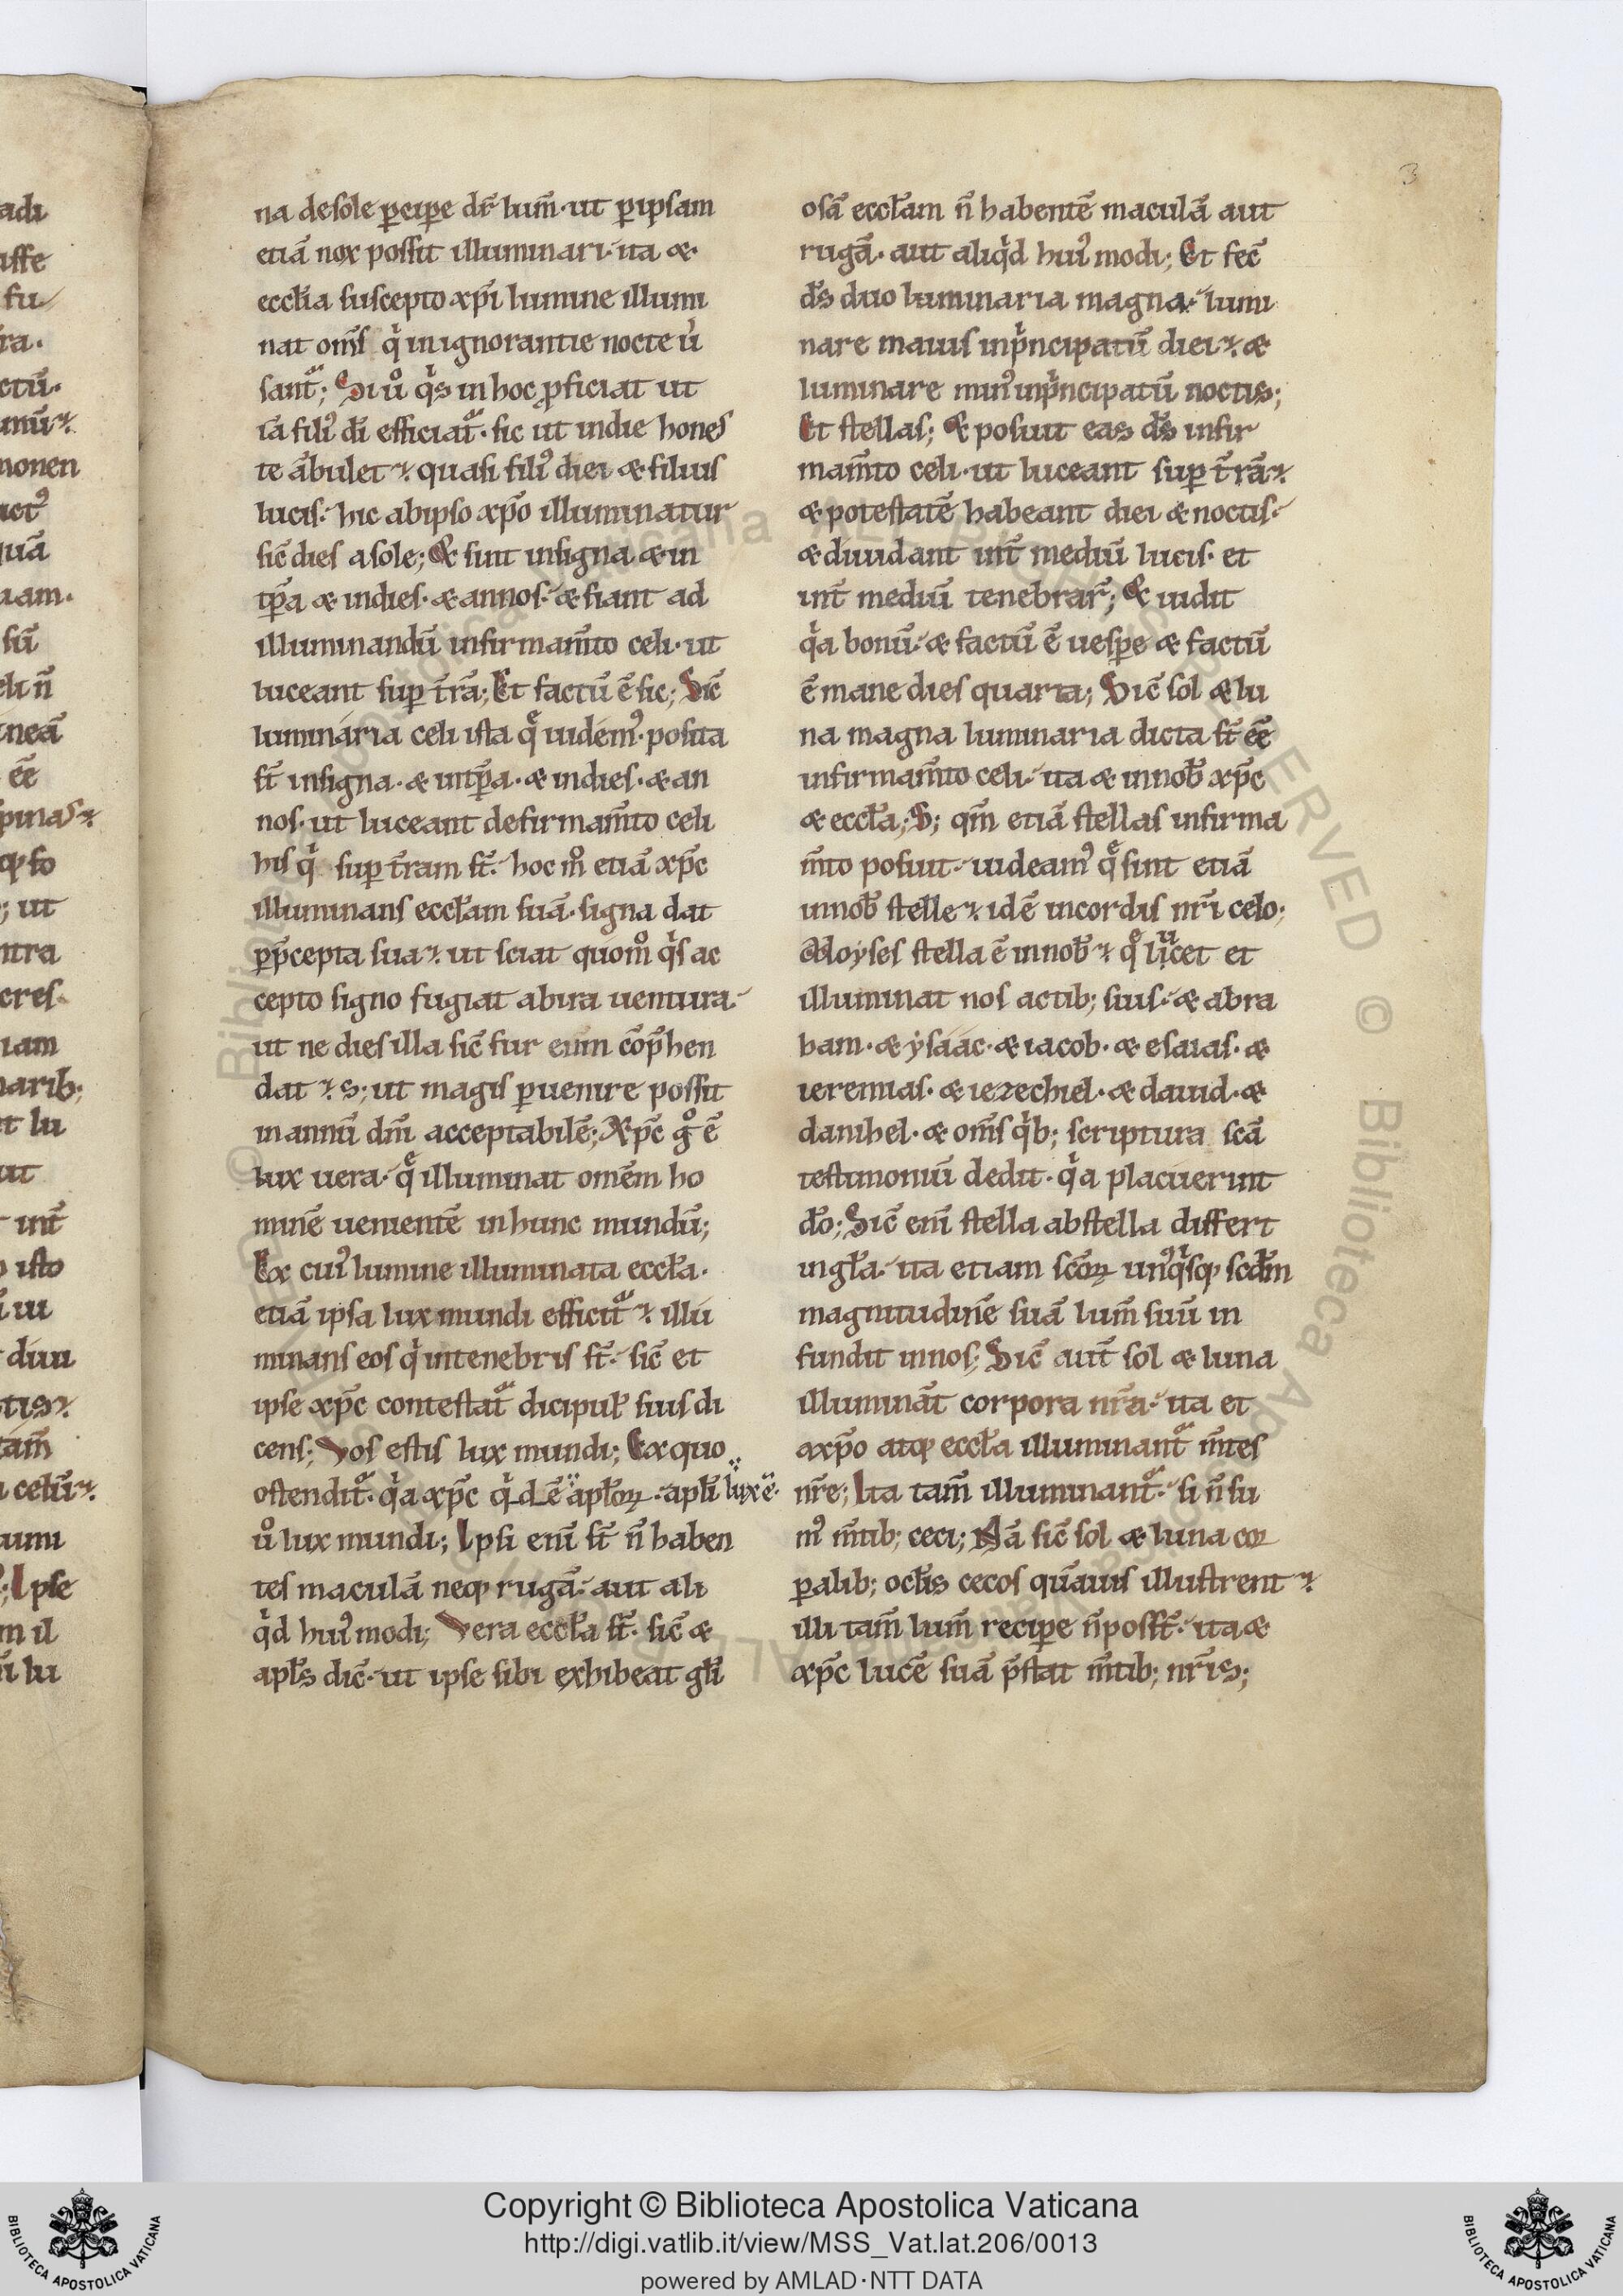 3
na desole p̲cip̲e dr̄ lum̄· ut p̲ ipsam
etiā nox possit illuminari· ita &·
eccl̄ia suscepto xp̄i lumine illumi
nat om̄s qͥ inignorantie nocte ūͥ
santᷓ; Si uͦ qͥs in hoc ꝓficiat ut
iā filiꝰ dī efficiatᷓ· sic ut indie hones
te ābulet quasi filiꝰ diei & filius
lucis· hic abipso xp̄o illuminatur
sic̄ dies asole; & sint insigna & in
tp̄a & indies· & annos· & fiant ad
illuminandū infirmam̄to celi· ut
luceant sup̲ t̄rā; Et factū ē sic; Sic̄
luminária celi ista qͤ uidemꝰ· posita
st̄ insigna· & intp̄a· & indies· & an
nos· ut luceant defirmam̄to celi
his qͥ sup̲ t̄ram st̄· hoc mͦ etiā xp̄c
illuminans eccl̄am suā· signa dat
p̲ p̄cepta sua· ut sciat quomͦ qͥs ac
cepto signo fugiat abira uentura·
ut ne dies illa sic̄ fur eum cōp̄hen
dat· s; ut magis p̲uenire possit
in annū dn̄i acceptabilē; Xp̄c gͦ ē
lux uera· qͤ illuminat omēm ho
minē uenientē in hunc mundū;
Ex cuiꝰ lumine illuminata eccl̄a·
etiā ipsa lux mundi efficitᷓ illu
minans eos qͥ intenebris st̄· sic̄ et
ipse xp̄c contestatᷓ dicipul̄ suis di
cens; Vos estis lux mundi; Ex quo
ostenditᷓ· qͥa xp̄c qͥdē apl̄oꝝ· apl̄i lux ē·
uͦ lux mundi; Ipsi enī st̄ n̄ haben
tes maculā neqꝫ rugā· aut ali
qͥd huiꝰ modi; Vera eccl̄a st̄· sic̄ &
apl̄s dic̄· ut ipse sibi exhibeat gl̄i
osā eccl̄am n̄ habentē maculā aut
rugā· aut aliqͥd huiꝰ modi; Et fec̄
ds̄ duo luminaria magna· lumi
nare maius inpͥncipatū diei· &
luminare minꝰ inpͥncipatū noctis;
Et stellas; & posuit eas ds̄ infir
mam̄to celi· ut luceant sup̲ t̄rā
& potestatē habeant diei & noctis·
& diuidant int̄ mediū lucis· et
int̄ mediū tenebrar̄; & uidit
qͥa bonū· & factū ē uesp̲e & factū
ē mane dies quarta; Sic̄ sol & lu
na magna luminaria dicta st̄ ee̅
infirmam̄to celi· ita & innob̄ xp̄c
& eccl̄a; S; qm̄ etiā stellas infirma
m̄to posuit· uideamꝰ qͤ sint etiā
innob̄ stelle idē incordis nr̄i celo;
Moyses stella ē innob̄ qͤ lucet et
illuminat nos actib; suis· & abra
ham· & ysáác· & iacob· & esaias· &
ieremias· & iezechiel· & dauid· &
danihel· & om̄s qͥb; scriptura scā
testimoniū dedit· qͥa placuerunt
dō; Sic̄ enī stella abstella differt
ingl̄a· ita etiam scōꝝ unꝰqͥsqꝫ scd̄m
magnitudinē suā lum̄ suū in
fundit innos; Sic̄ aut̄ sol & luna
illumināt corpora nr̄a· ita et
axp̄o atqꝫ eccl̄a illuminantᷓ m̄tes
nr̄e; Ita tam̄ illuminantᷓ· si n̄ su
mꝰ m̄tib; ceci; Nā sic̄ sol & luna cor
p̲alib; ocl̄is cecos quāuis illustrent
illi tam̄ lum̄ recip̲e n̄ posst̄· ita &
xp̄c lucē suā p̄stat m̄tib; nr̄is;
Copyright © Biblioteca Apostolica Vaticana
http://digi.vatlib.it/view/MSS_Vat.lat.206/0013
powered by AMLAD·NTT DATA
BIBLIOTECA APOSTOLICA VATICANA
BIBLIOTECA APOSTOLICA VATICANA